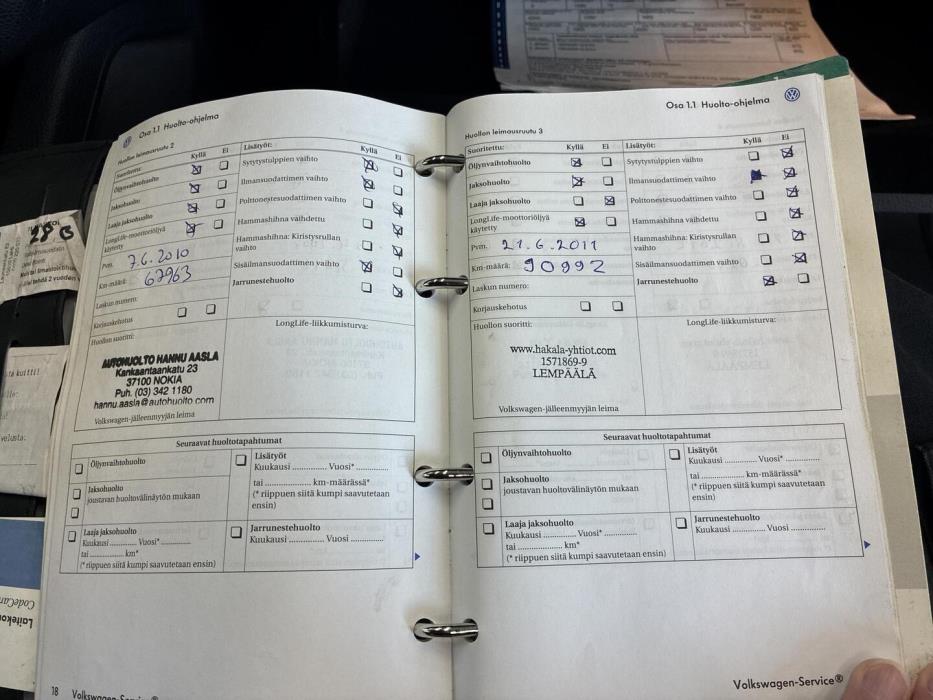 Osa 1.1 Huolto-ohjelma
Huollon leimausruutu 2
Suoritettu: Kyllä Ei Lisätyöt: Kyllä Ei
Öljynvaihtohuolto Sytytystulppien vaihto
Jaksohuolto Ilmansuodattimen vaihto
Laaja jaksohuolto Polttonestesuodattimen vaihto
LongLife-moottoriöljyä
käytetty Hammashihna vaihdettu
Pvm. 7.6.2010 Hammashihna: Kiristysrullan
vaihto
Km-määrä: 67963 Sisäilmansuodattimen vaihto
Laskun numero: Jarrunestehuolto
Korjauskehotus
Huollon suoritti: LongLife-liikkumisturva:
AUTOHUOLTO HANNU AASLA
Kankaantaankatu 23
37100 NOKIA
Puh. (03) 342 1180
hannu.aasla@autohuolto.com
Volkswagen-jälleenmyyjän leima
Seuraavat huoltotapahtumat
Öljynvaihtohuolto
Lisätyöt
Kuukausi ............ Vuosi* ............
tai ............ km-määrässä*
(* riippuen siitä kumpi saavutetaan
ensin)
Jaksohuolto
joustavan huoltovälinäytön mukaan
Laaja jaksohuolto
Kuukausi ............ Vuosi* ............
tai ............ km*
(* riippuen siitä kumpi saavutetaan ensin)
Jarrunestehuolto
Kuukausi ............ Vuosi ............
18 Volkswagen-Service®
Osa 1.1 Huolto-ohjelma
Huollon leimausruutu 3
Suoritettu: Kyllä Ei Lisätyöt: Kyllä Ei
Öljynvaihtohuolto Sytytystulppien vaihto
Jaksohuolto Ilmansuodattimen vaihto
Laaja jaksohuolto Polttonestesuodattimen vaihto
LongLife-moottoriöljyä
käytetty Hammashihna vaihdettu
Pvm. 21.6.2011 Hammashihna: Kiristysrullan
vaihto
Km-määrä: 90992 Sisäilmansuodattimen vaihto
Laskun numero: Jarrunestehuolto
Korjauskehotus
Huollon suoritti: LongLife-liikkumisturva:
www.hakala-yhtiot.com
1571869-9
LEMPÄÄLÄ
Volkswagen-jälleenmyyjän leima
Seuraavat huoltotapahtumat
Öljynvaihtohuolto
Lisätyöt
Kuukausi ............ Vuosi* ............
tai ............ km-määrässä*
(* riippuen siitä kumpi saavutetaan
ensin)
Jaksohuolto
joustavan huoltovälinäytön mukaan
Laaja jaksohuolto
Kuukausi ............ Vuosi* ............
tai ............ km*
(* riippuen siitä kumpi saavutetaan ensin)
Jarrunestehuolto
Kuukausi ............ Vuosi ............
Volkswagen-Service®